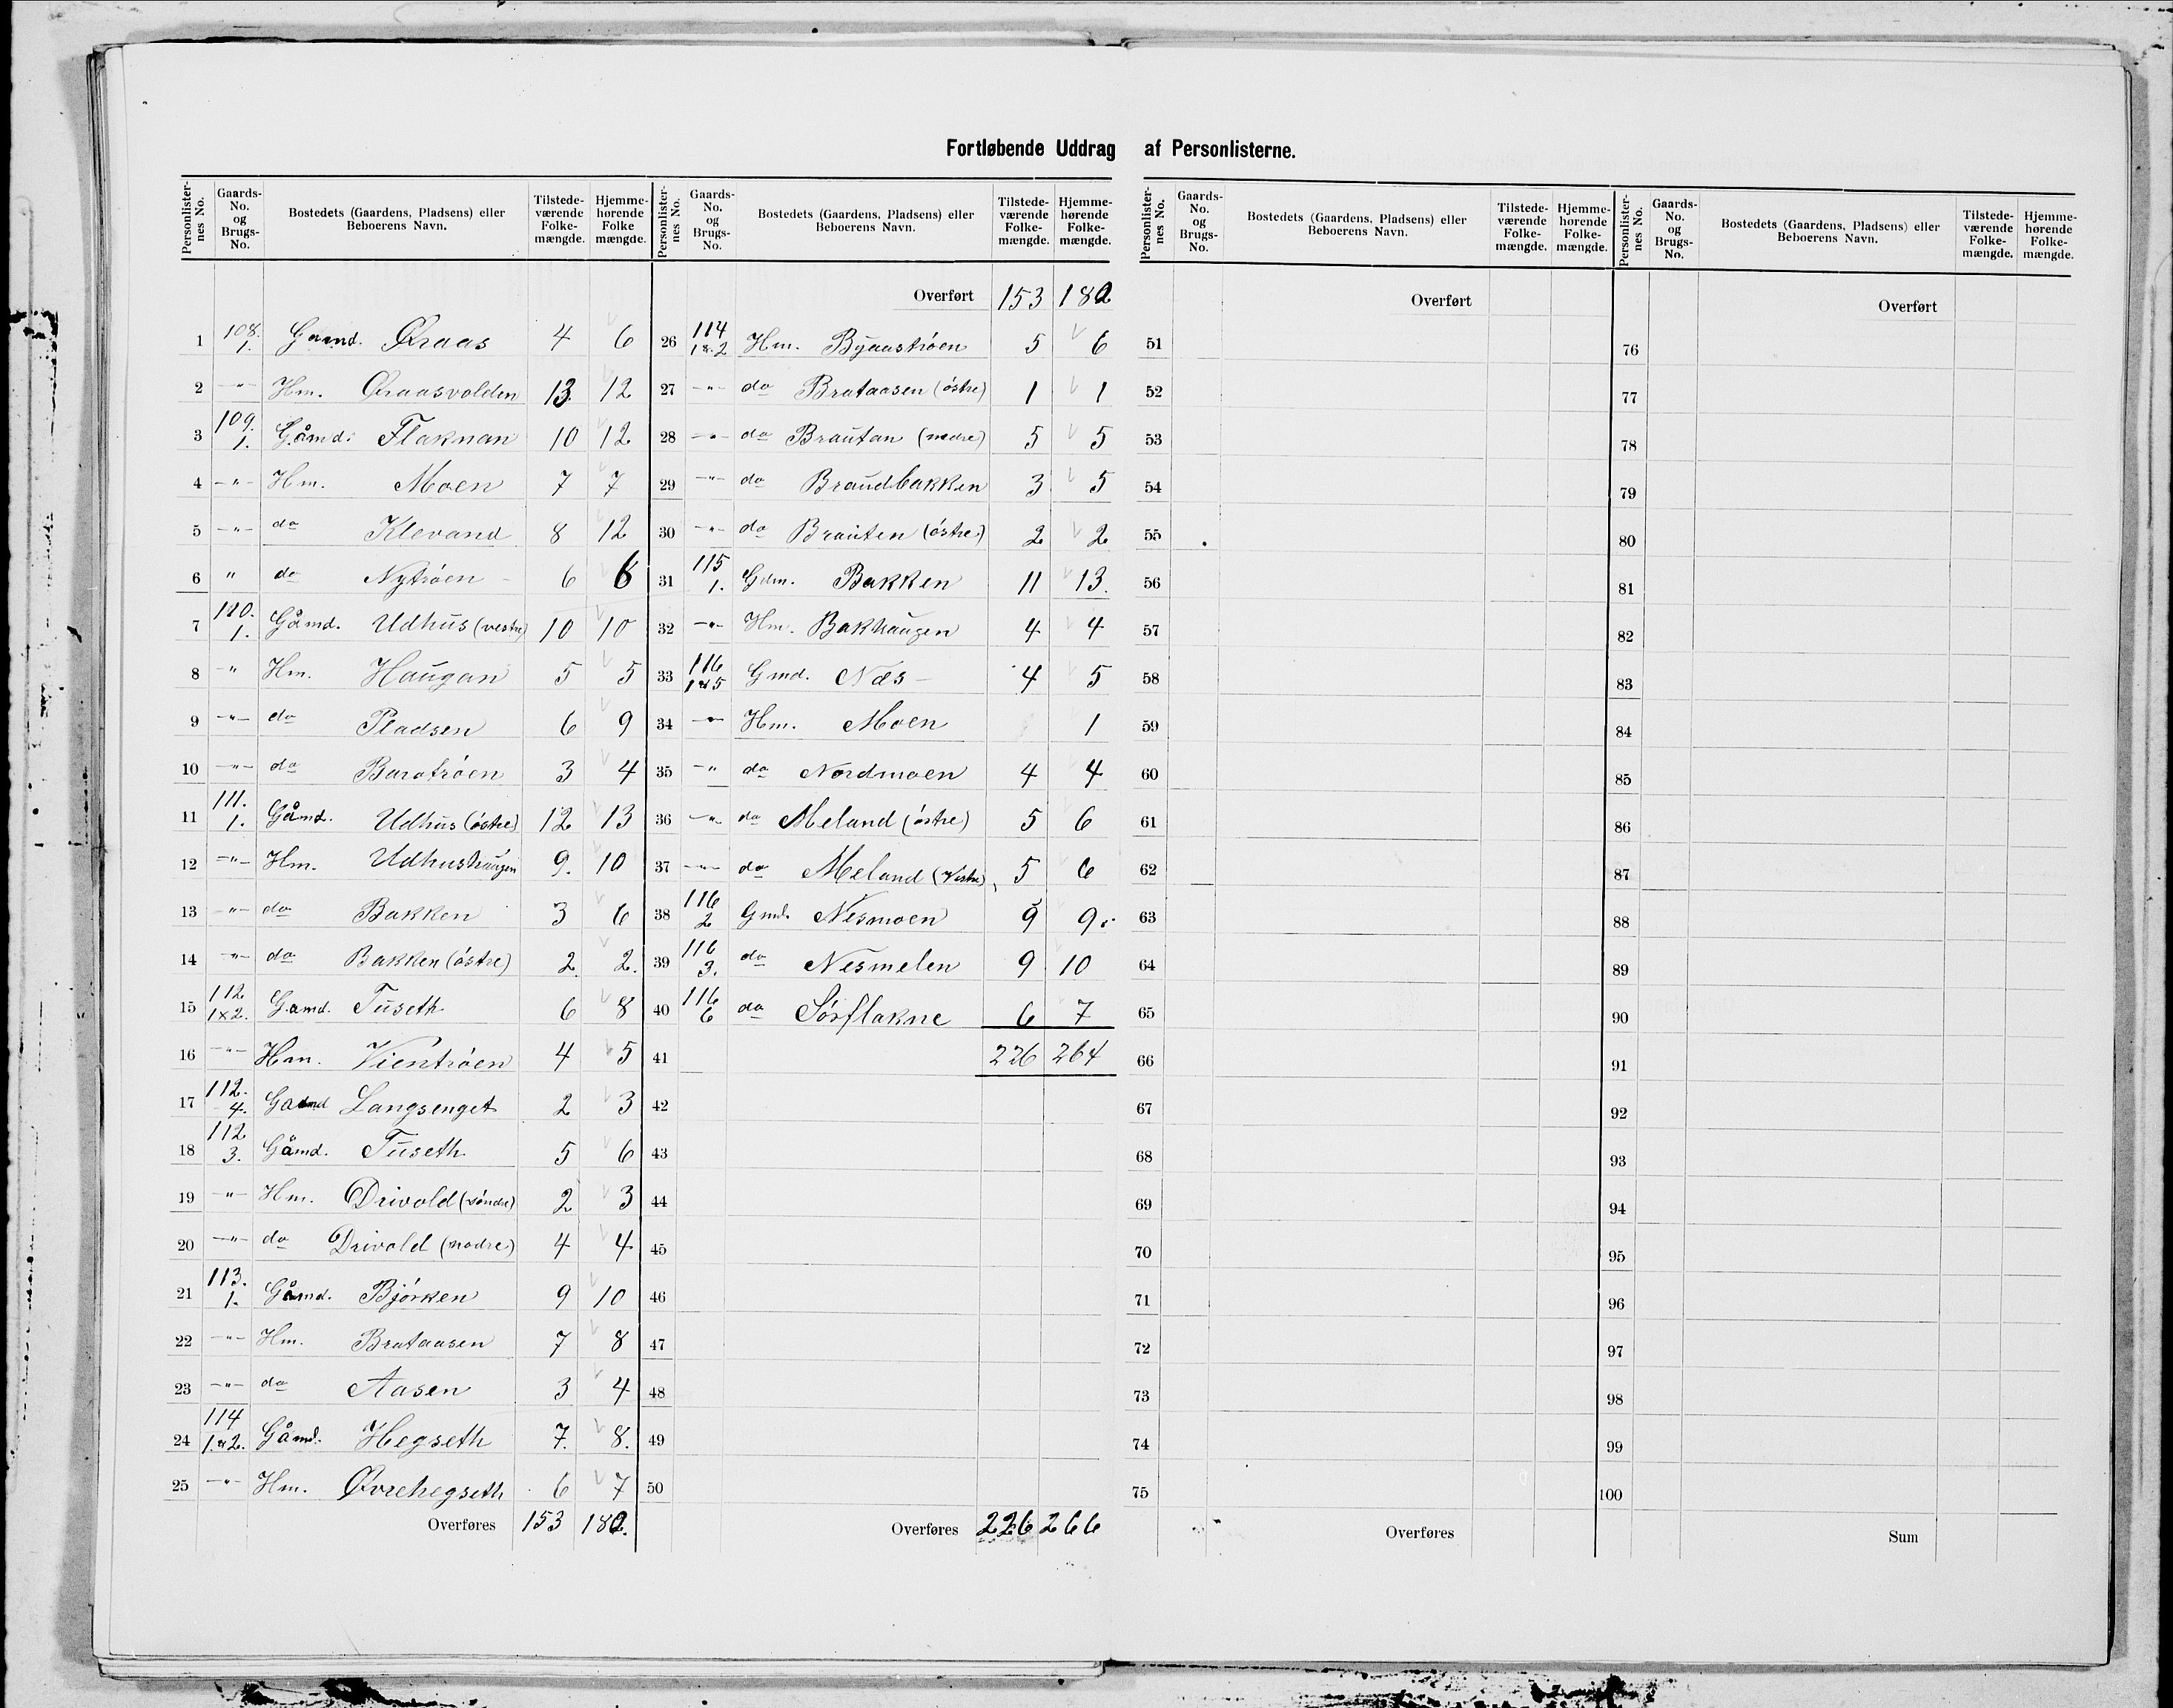 Fortløbende Uddrag af Personlisterne.
Personlister-nes No. Gaards-No. og Brugs-No. Bostedets (Gaardens, Pladsens) eller Beboerens Navn. Tilstede-værende Folke-mængde. Hjemme-hørende Folke mængde.
1 108. 1. Gamd. Øraas 4 6
2 -"- Hm. Øraasvolden 13 12
3 109. 1. Gåmd. Flaknan 10 12
4 -"- Hm. Moen 7 7
5 -"- do Klevand 8 12
6 " do Nytrøen 6 6
7 110. 1. Gåmd. Udhus (vestre) 10 10
8 -" Hm. Haugan 5 5
9 -"- do Pladsen 6 9
10 -"- do Baratrøen 3 4
11 111. 1. Gåmd. Udhus (østre) 12 13
12 -"- Hm. Udhushaugen 9. 10
13 -"- do Bakken 3 6
14 -"- do Bakken (østre) 2. 2.
15 112 1x2. Gamd. Tuseth 6 8
16 -"- Hm. Vientrøen 4 5
17 112. 4. Gaamd Langsenget 2 3
18 112 3. Gåmd. Tuseth 5 6
19 -"- Hm. Drivold (søndre) 2 3
20 -"- do Drivold (nodre) 4 4
21 113. 1. Gåmd. Bjørken 9 10
22 -"- Hm. Brataasen 7 8
23 -"- do Aasen 3 4
24 114 1.&2. Gåmd. Hegseth 7. 8.
25 -"- Hm. Øvrehegseth 6 7
Overføres 153 182.
Personlister-nes No. Gaards-No. og Brugs-No. Bostedets (Gaardens, Pladsens) eller Beboerens Navn. Tilstede-værende Folke-mængde. Hjemme-hørende Folke-mængde.
Overført 153 182
26 114 1&2 Hm. Byaastrøen 5 6
27 -"- do Brataasen (østre) 1 1
28 -"- do Brautan (nedre) 5 5
29 -"- do Braudbakken 3 5
30 -"- do Brauten (østre) 2 2
31 115 1. Gdm. Bakken 11 13.
32 -"- Hm. Bakhaugen 4 4
33 116 1&5 Gmd. Næs 4 5
34 -"- Hm. Moen 1
35 -" do Nordmoen 4 4
36 -"- do Meland (østre) 5 6
37 -"- do Meland (Vestre) 5 6
38 116 2 Gmd. Nesmoen 9 9.
39 116 3. do Nesmelen 9 10
40 116 6 do Sørflakne 6 7
41 226 264
42
43
44
45
46
47
48
49
50
Overføres 226 266
Personlister-nes No. Gaards-No. og Brugs-No. Bostedets (Gaardens, Pladsens) eller Beboerens Navn. Tilstede-værende Folke-mængde. Hjemme-hørende Folke-mængde.
Overført
51
52
53
54
55
56
57
58
59
60
61
62
63
64
65
66
67
68
69
70
71
72
73
74
75
Overføres
Personlister-nes No. Gaards-No. og Brugs-No. Bostedets (Gaardens, Pladsens) eller Beboerens Navn. Tilstede-værende Folke-mængde. Hjemme-hørende Folke-mængde.
Overført
76
77
78
79
80
81
82
83
84
85
86
87
88
89
90
91
92
93
94
95
96
97
98
99
100
Sum